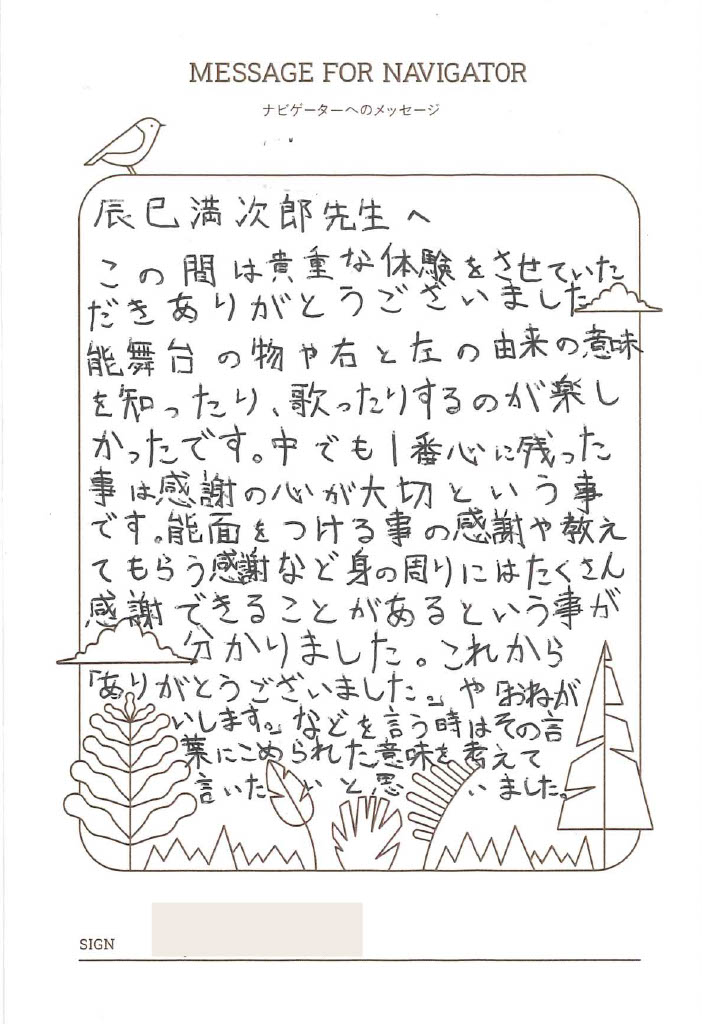 MESSAGE FOR NAVIGATOR
ナビゲーターへのメッセージ
辰巳満次郎先生へ
この間は貴重な体験をさせていた
だきありがとうございました
能舞台の物や右と左の由来の意味
を知ったり、歌ったりするのが楽し
かったです。中でも1番心に残った
事は感謝の心が大切という事
です。能面をつける事の感謝や教え
てもらう感謝など身の周りにはたくさん
感謝できることがあるという事が
分かりました。これから
「ありがとうございました。」や「おねが
いします。」などを言う時はその言
葉にこめられた意味を考えて
言いたいと思いました。
SIGN